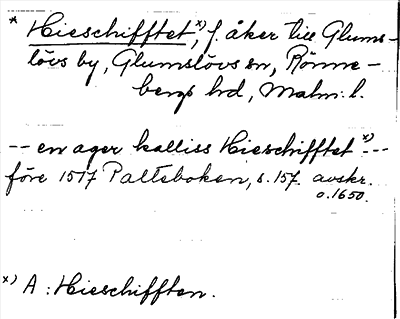 * Hieschifftet, x) f. åker till Glums-
lövs by, Glumslövs sn, Rönne-
bergs hd, Malm. l.
-- en ager kalliss Hieschifftet x) --
före 1517 Palteboken, s. 157. avskr.
o. 1650.
x) A : Hieschifften.